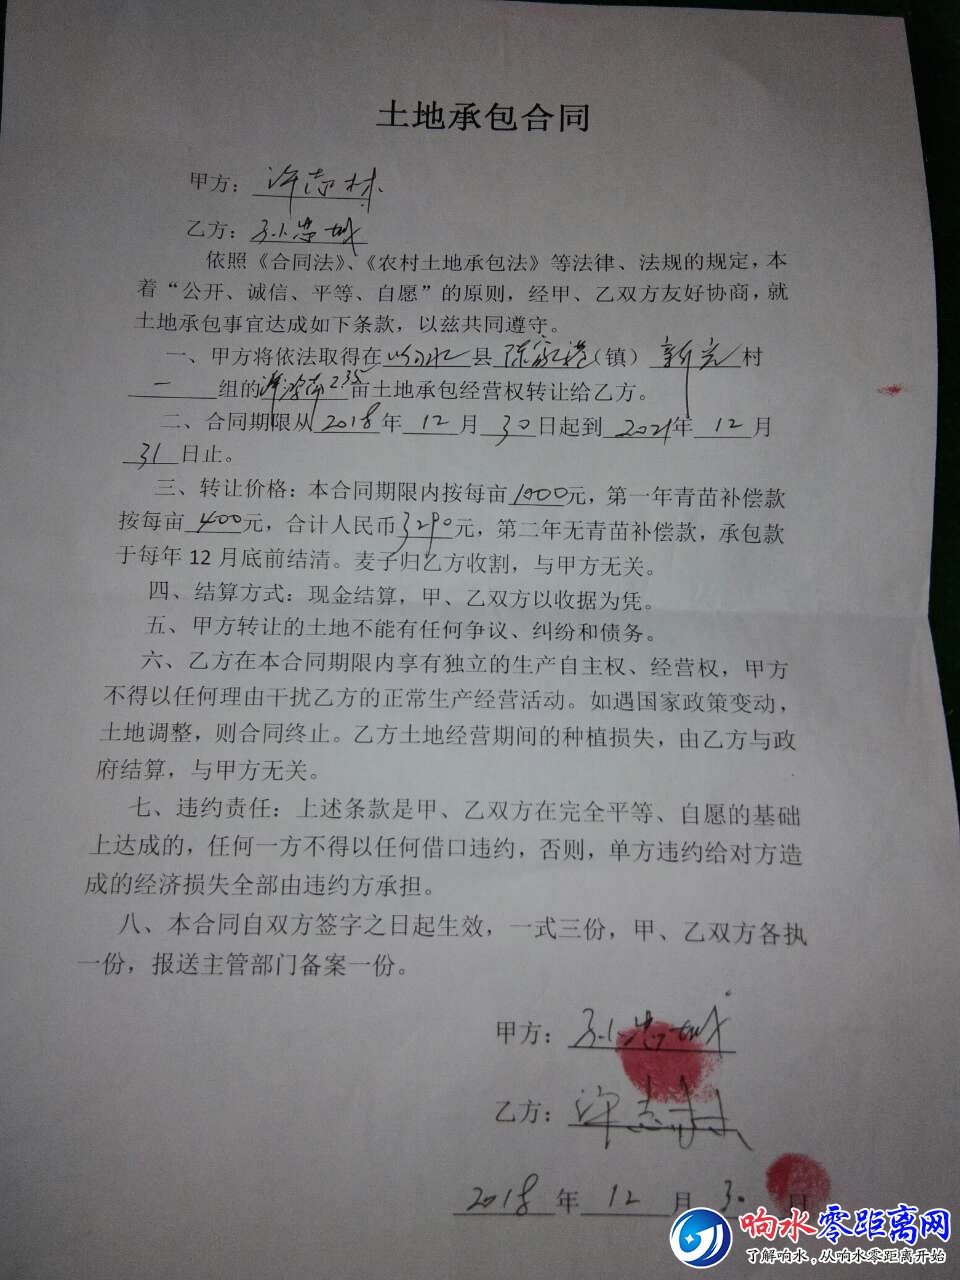 土地承包合同
甲方：许志林
乙方：孙忠城
依照《合同法》、《农村土地承包法》等法律、法规的规定，本
着“公开、诚信、平等、自愿”的原则，经甲、乙双方友好协商，就
土地承包事宜达成如下条款，以兹共同遵守。
一、甲方将依法取得在响水县陈家港（镇）新光村
一组的 2.35亩土地承包经营权转让给乙方。
二、合同期限从2018年12月30日起到2021年12月
31日止。
三、转让价格：本合同期限内按每亩1000元，第一年青苗补偿款
按每亩400元，合计人民币3290元，第二年无青苗补偿款，承包款
于每年12月底前结清。麦子归乙方收割，与甲方无关。
四、结算方式：现金结算，甲、乙双方以收据为凭。
五、甲方转让的土地不能有任何争议、纠纷和债务。
六、乙方在本合同期限内享有独立的生产自主权、经营权，甲方
不得以任何理由干扰乙方的正常生产经营活动。如遇国家政策变动，
土地调整，则合同终止。乙方土地经营期间的种植损失，由乙方与政
府结算，与甲方无关。
七、违约责任：上述条款是甲、乙双方在完全平等、自愿的基础
上达成的，任何一方不得以任何借口违约，否则，单方违约给对方造
成的经济损失全部由违约方承担。
八、本合同自双方签字之日起生效，一式三份，甲、乙双方各执
一份，报送主管部门备案一份。
甲方：孙忠城
乙方：许志林
2018年12月30日
响水零距离网
了解响水，从响水零距离开始